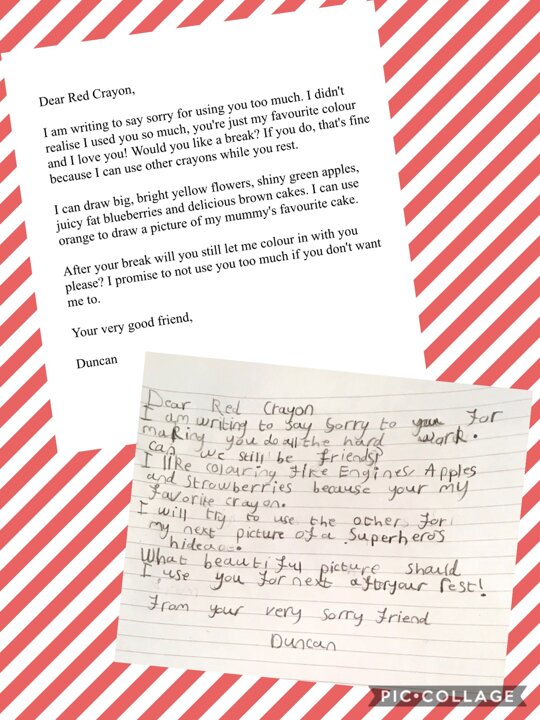 Dear Red Crayon,
I am writing to say sorry for using you too much. I didn't
realise I used you so much, you're just my favourite colour
and I love you! Would you like a break? If you do, that's fine
because I can use other crayons while you rest.
I can draw big, bright yellow flowers, shiny green apples,
juicy fat blueberries and delicious brown cakes. I can use
orange to draw a picture of my mummy's favourite cake.
After your break will you still let me colour in with you
please? I promise to not use you too much if you don't want
me to.
Your very good friend,
Duncan
Dear Red Crayon
I am writing to say sorry to you for
making you do all the hard work.
can we still be friends?
I like colouring fire Engines, Apples
and strawberries because your my
favorite crayon.
I will try to use the other for
my next picture of a superheros
hideaoe.
What beautiful picture should
I use you for next after your rest!
From your very sorry friend
Duncan
PIC•COLLAGE